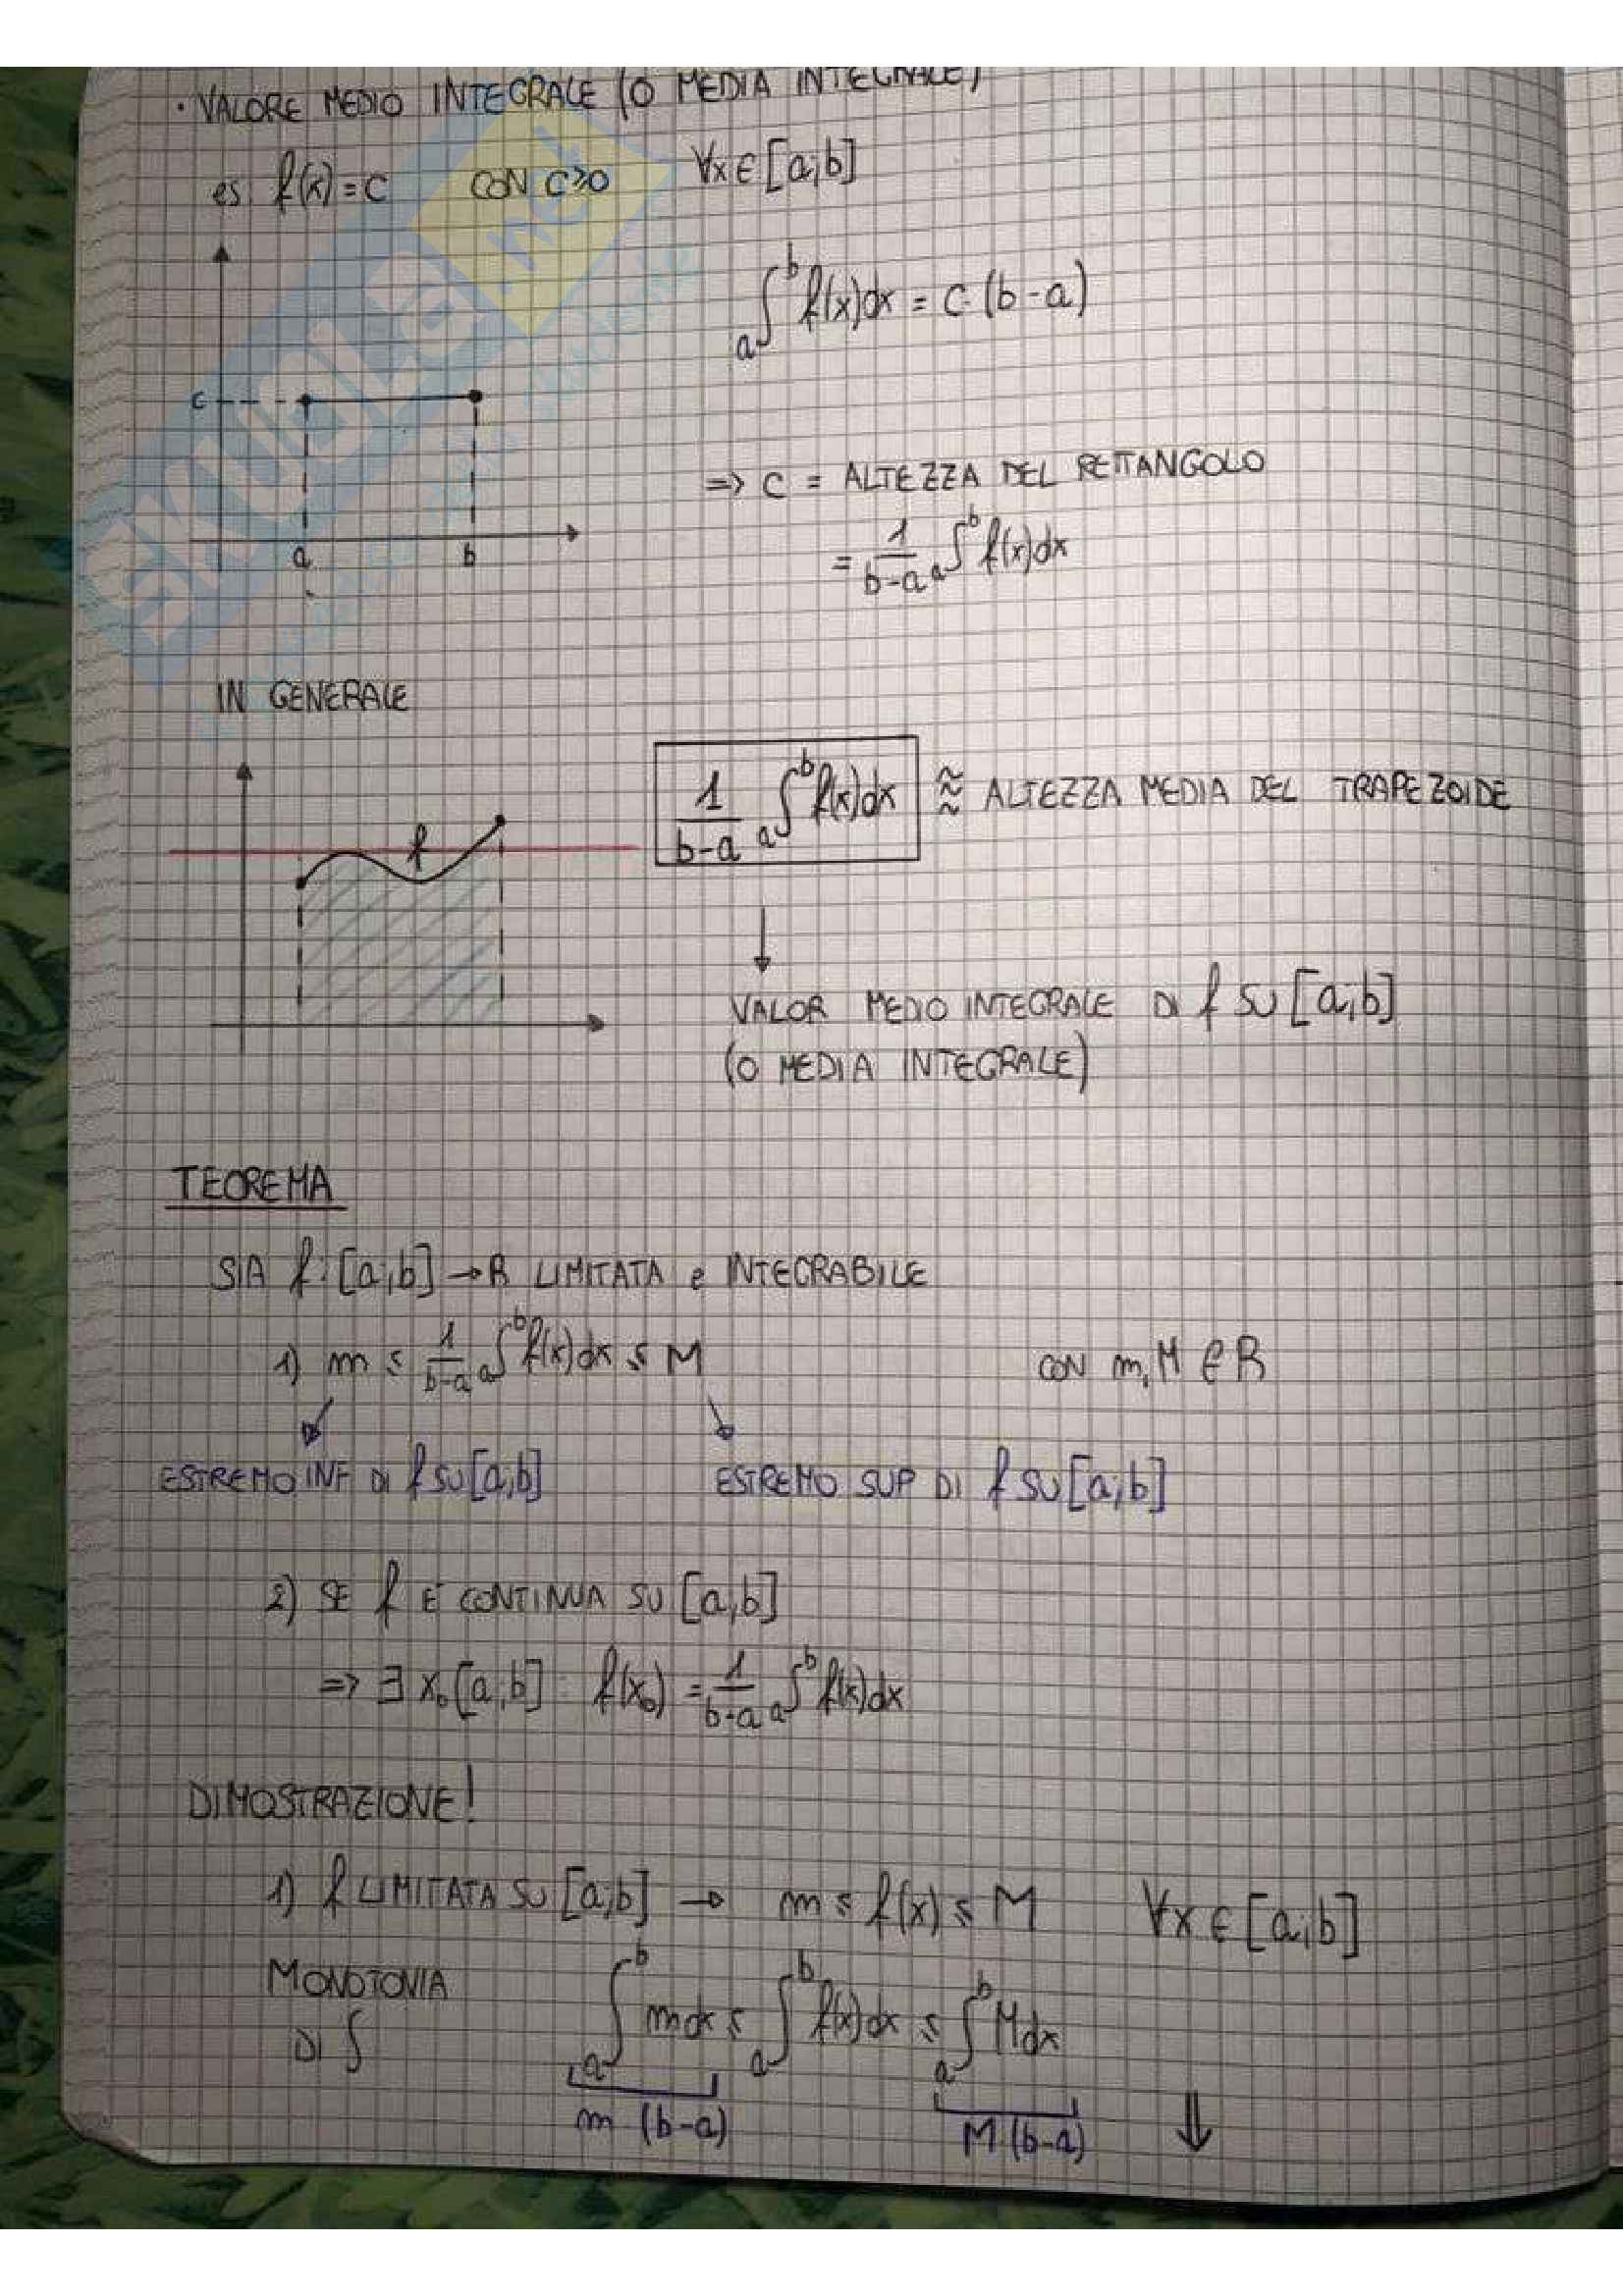 · VALORE MEDIO INTEGRALE (O MEDIA INTEGRALE)
es f(x) = C CON C≥0 ∀x∈[a;b]
a∫b f(x)dx = C·(b-a)
c
a b
=> C = ALTEZZA DEL RETTANGOLO
= 1/(b-a) a∫b f(x)dx
IN GENERALE
f
1/(b-a) a∫b f(x)dx ≈ ALTEZZA MEDIA DEL TRAPEZOIDE
VALOR MEDIO INTEGRALE DI f SU [a;b]
(O MEDIA INTEGRALE)
TEOREMA
SIA f: [a;b] → R LIMITATA e INTEGRABILE
1) m ≤ 1/(b-a) a∫b f(x)dx ≤ M CON m,M ∈ R
ESTREMO INF DI f SU [a;b] ESTREMO SUP DI f SU [a;b]
2) SE f E CONTINUA SU [a;b]
=> ∃ x₀ [a;b] : f(x₀) = 1/(b-a) a∫b f(x)dx
DIMOSTRAZIONE!
1) f LIMITATA SU [a;b] → m ≤ f(x) ≤ M ∀x∈[a;b]
MONOTONIA
DI ∫
a∫b mdx ≤ a∫b f(x)dx ≤ a∫b Mdx
m (b-a) M (b-a) ⇓
SKUOLA.net